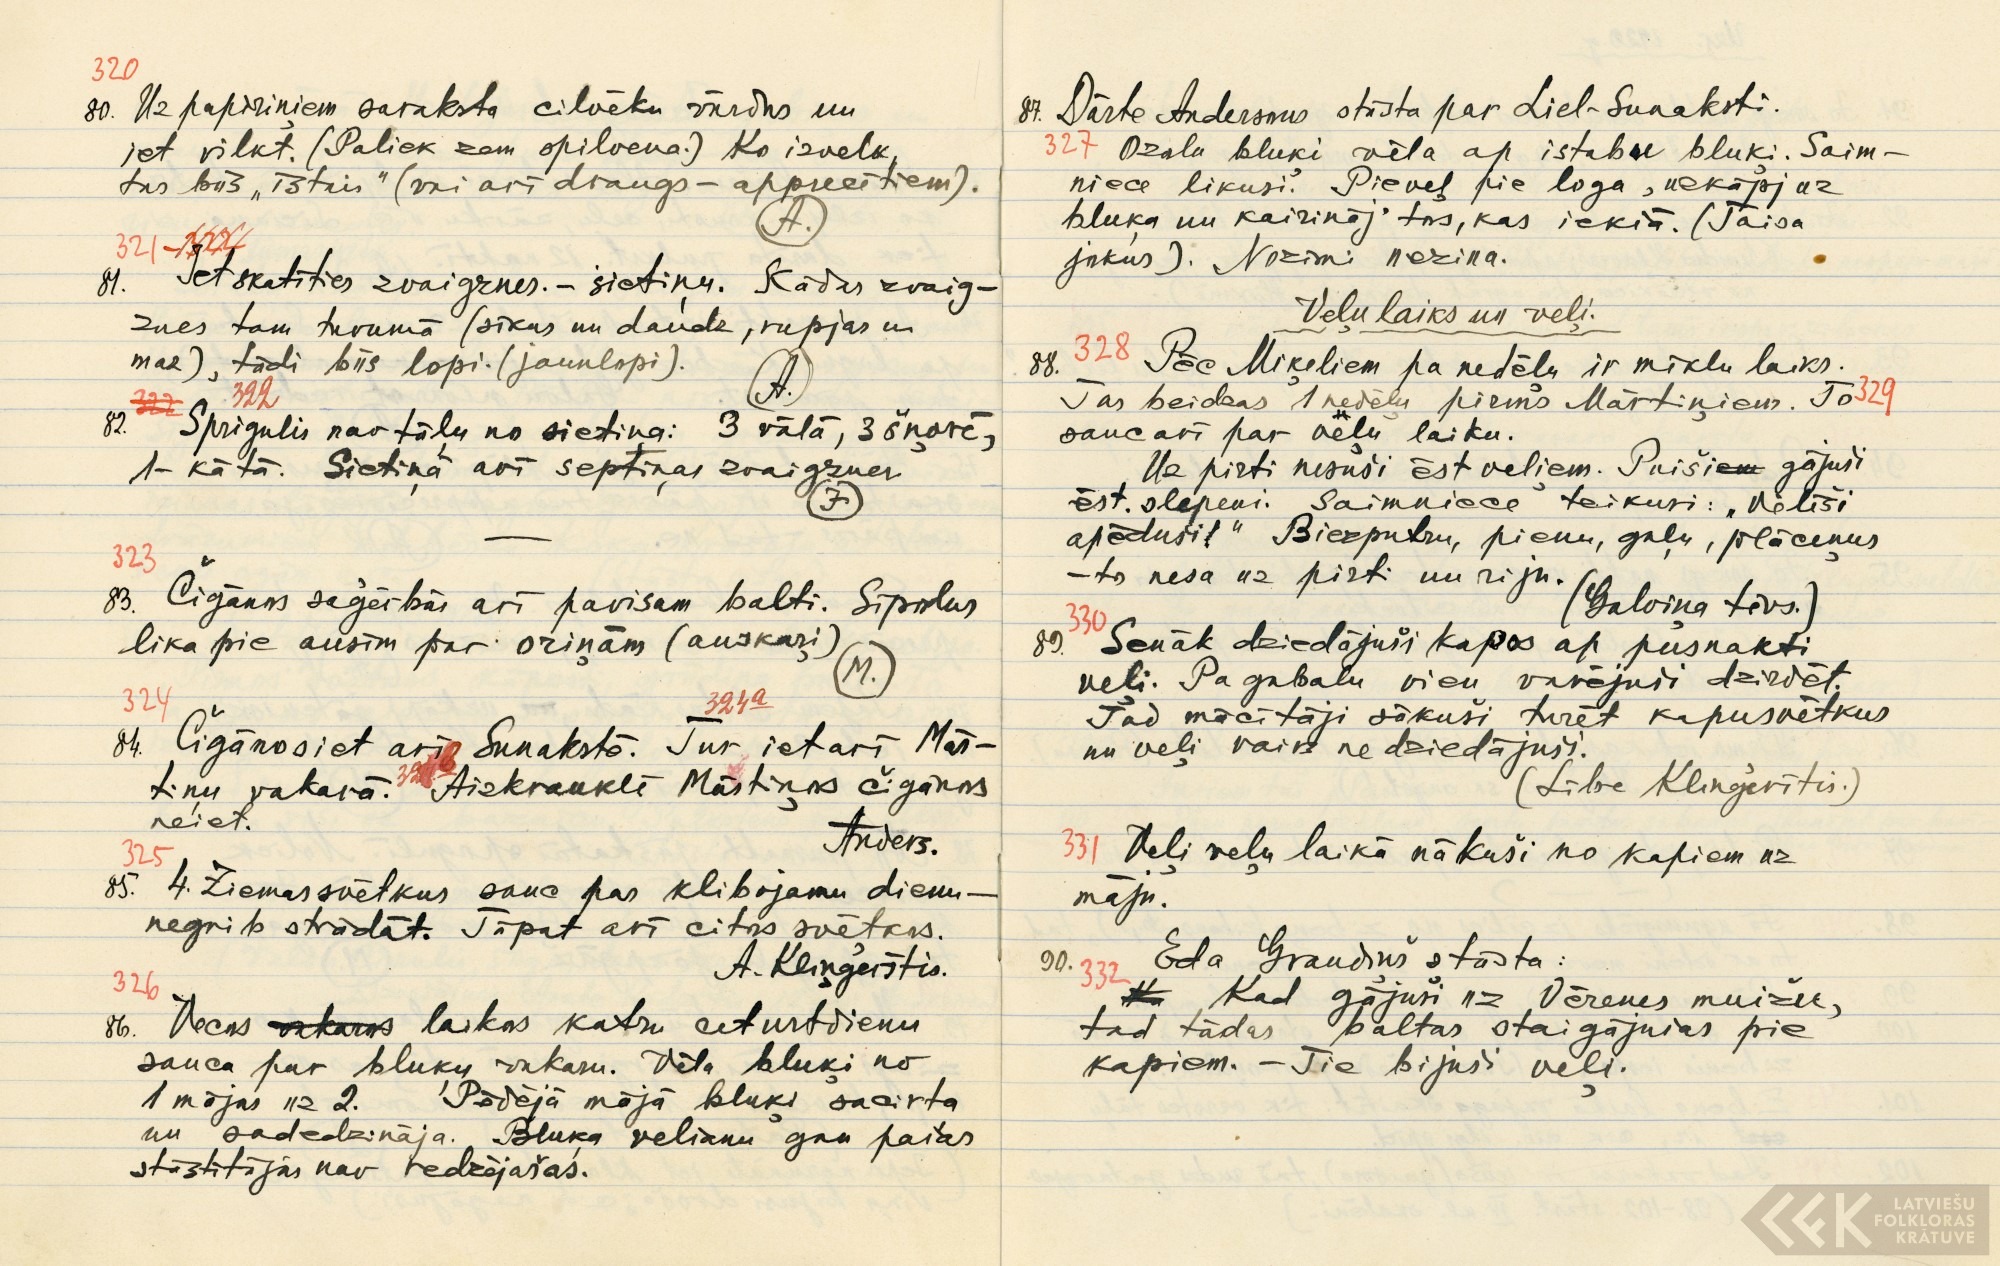 320
80. Uz papīriņiem saraksta cilvēku vārdus un
iet vilkt. (Paliek zem spilvena.) Ko izvelk,
tas būs „īstais" (vai arī draugs - apprecētiem).
A.
321
81. Iet skatīties zvaigznes. - sietiņu. Kādas zvaig-
znes tam tuvumā (sīkas un daudz, rupjas un
maz), tādi būs lopi. (jaunlopi).
A.
322
82. Sprigulis nav tālu no sietiņa: 3 vālā, 3 šņorē,
1 - kātā. Sietiņā arī septiņas zvaigznes
F
323
83. Čigānos saģērbās arī pavisam balti. Sīpolus
lika pie ausīm par oriņām (auskari)
M.
324
84. Čigānos iet arī Sunākstē. 324a Tur iet arī Mār-
tiņu vakarā. Aizkrauklē Mārtiņos čigānos
neiet.
Anders.
325
85. 4. Ziemassvētkus sauc par klibojamu dienu -
negrib strādāt. Tāpat arī citos svētkos.
A. Klinģerītis.
326
86. Vecos vakaros laikos katru ceturtdienu
sauca par bluķu vakaru. Vēla bluķi no
1 mājas uz 2. Pēdējā mājā bluķi sacirta
un sadedzināja. Bluķa velšanu gan pašas
stāstītājas nav redzējašas.
87. Dārte Andersons stāsta par Liel-Sunāksti.
327 Ozola bluķi vēla ap istabu bluķi. Saim-
niece likusi. Pieveļ pie loga, uzkāpj uz
bluķa un kairināj tos, kas iekšā. (Taisa
jokus). Nozīmi nezina.
Veļu laiks un veļi.
88. 328 Pēc Miķeliem pa nedēļu ir mīklu laiks.
Tas beidzas 1 nedēļu pirms Mārtiņiem. To 329
sauc arī par vēļu laiku.
Uz pirti nesuši ēst veļiem. Puiši gājuši
ēst. slepeni. Saimniece teikusi: „Vēlīši
apēduši!" Biezputru, pienu, gaļu, plāceņus
- to nesa uz pirti un riju.
(Galviņa tēvs.)
330
89. Senāk dziedājuši kapos ap pusnakti
veļi. Pa gabalu vien varējuši dzirdēt.
Tad mācītāji sākuši turēt kapusvētkus
un veļi vairs ne dziedājuši.
(Lībe Klinģerītis.)
331 Veļi veļu laikā nākuši no kapiem uz
māju.
90. Eda Graudiņš stāsta:
332 Kad gājuši uz Vērenes muižu,
tad tādas baltas staigājušas pie
kapiem. - Tie bijuši veļi.
LATVIEŠU
FOLKLORAS
KRĀTUVE